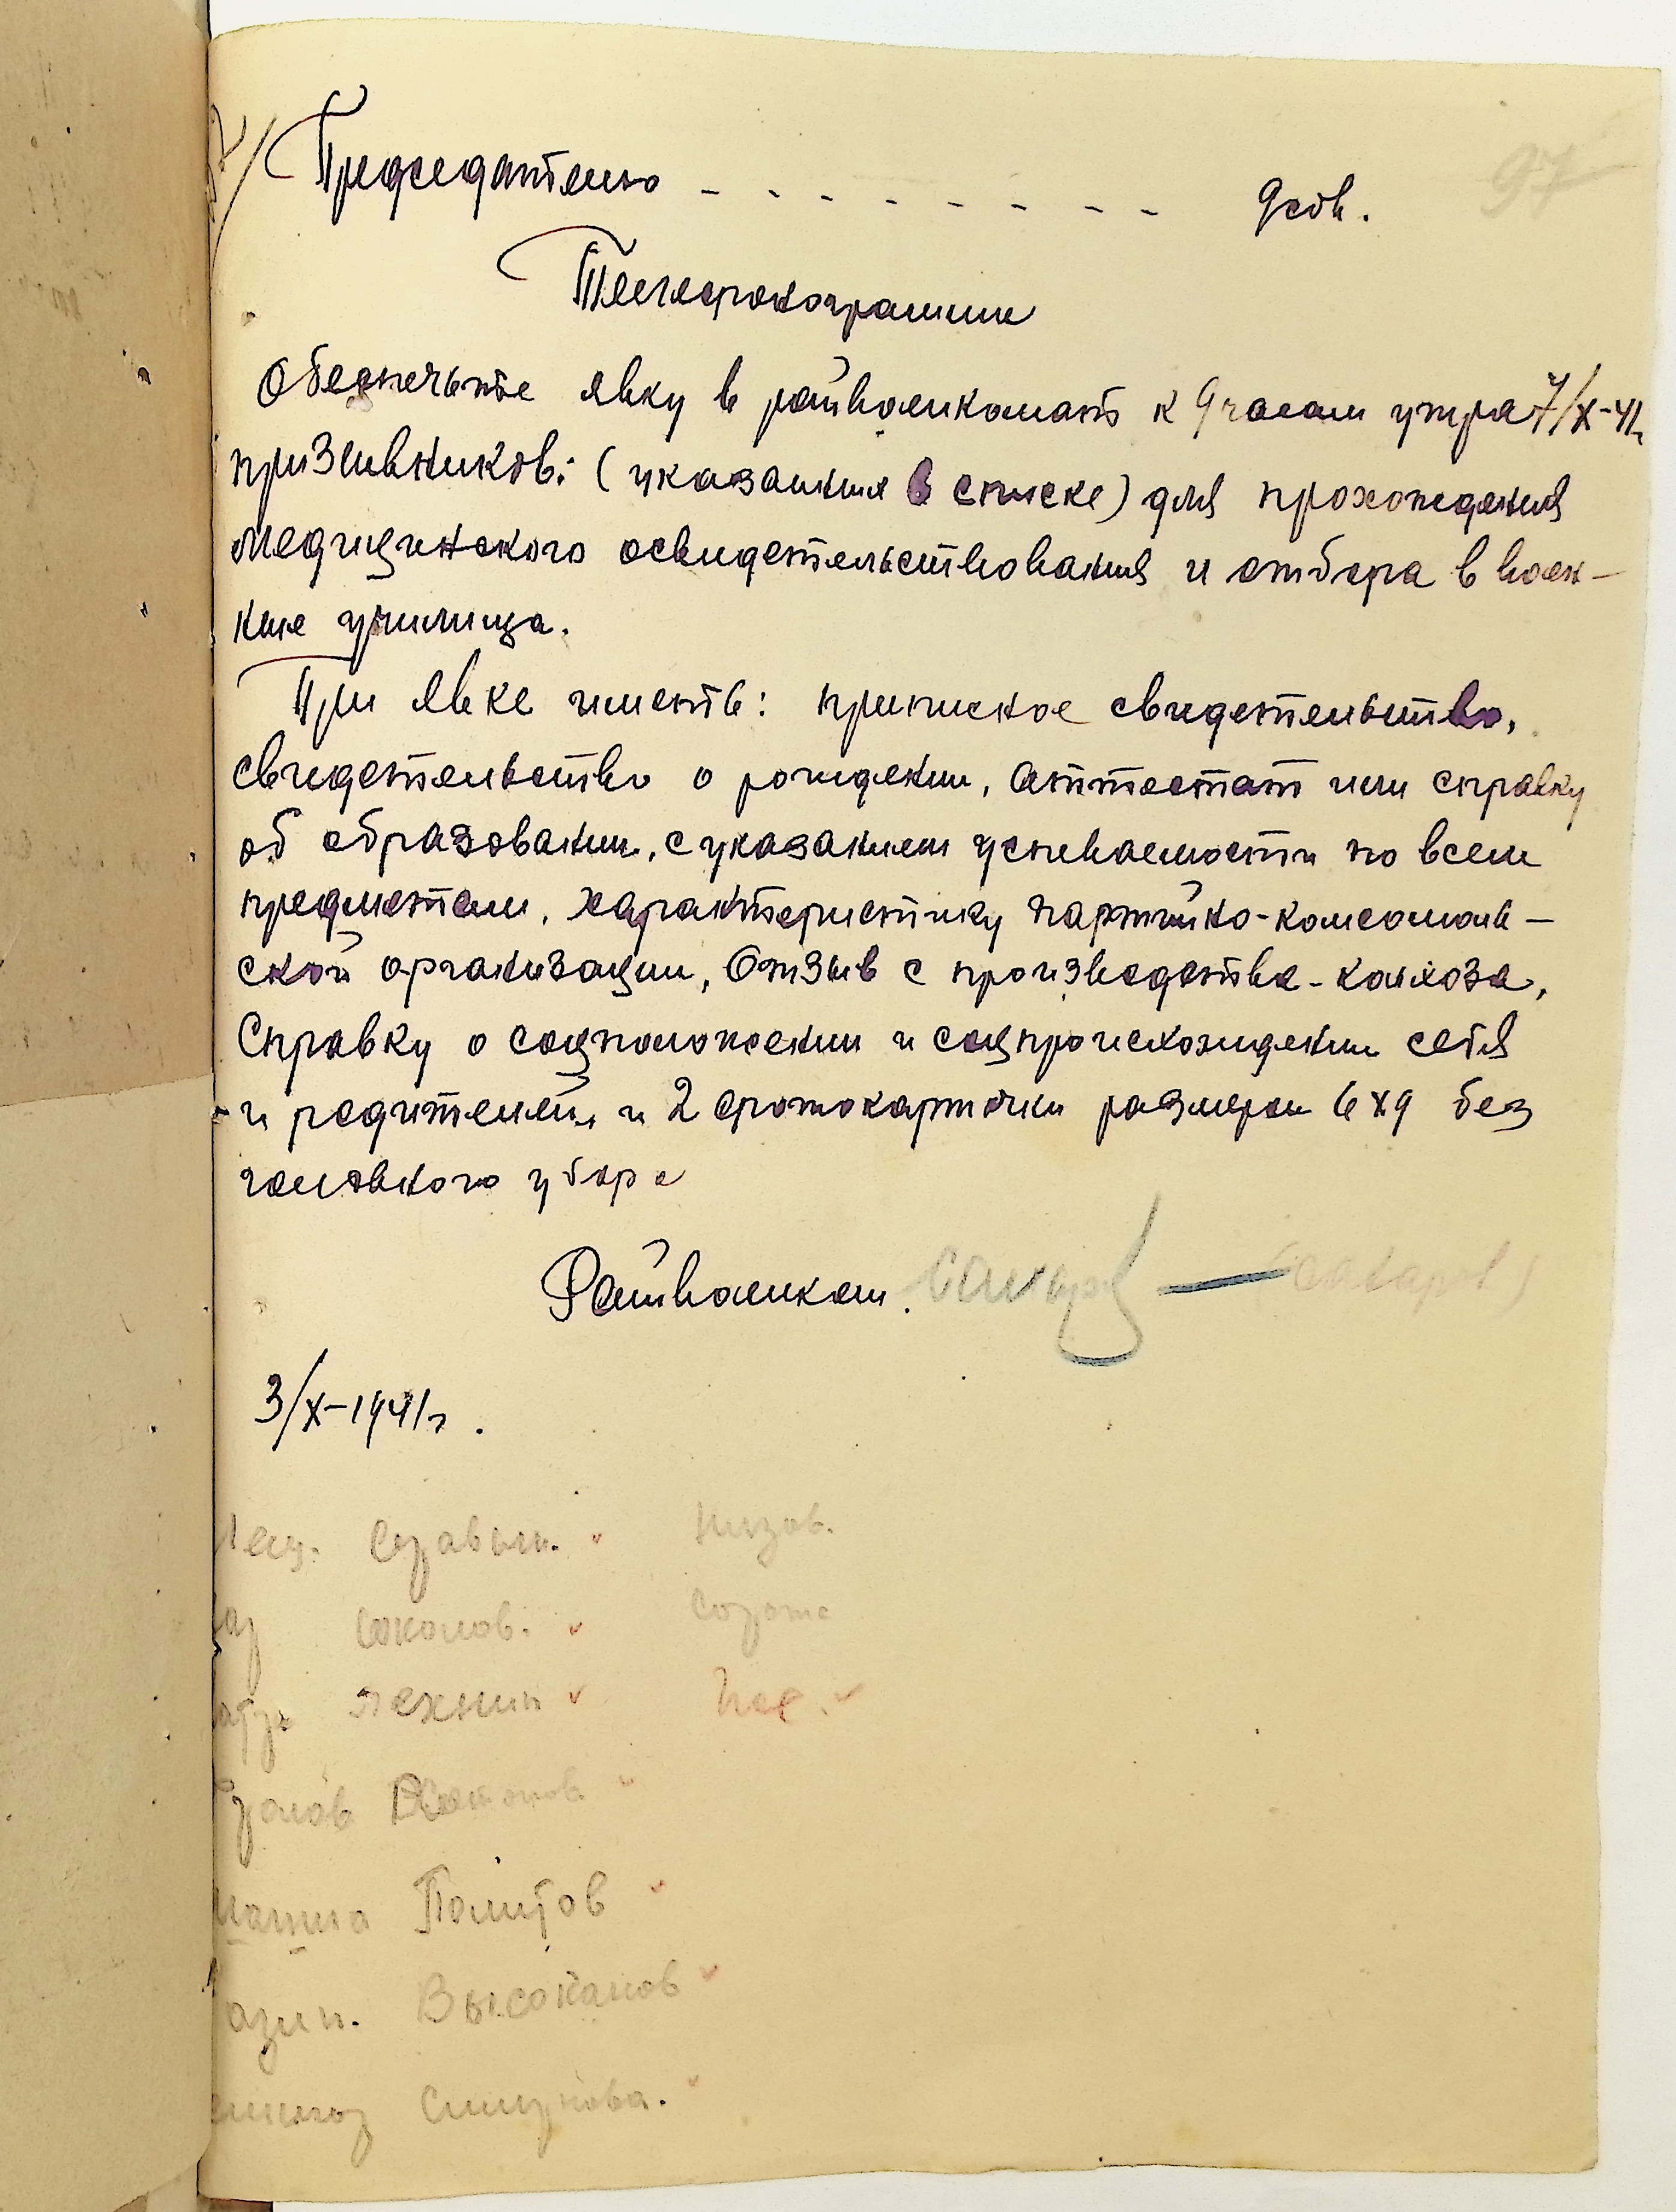 Председателю - - - - - - - - - д сов.
97
Телефонограмма
Обеспечьте явку в райвоенкомат к 9 часам утра 7/X-41г.
призывников: (указанных в списке) для прохождения
медицинского освидетельствования и отбора в воен-
ные училища.
При явке иметь: приписное свидетельство,
свидетельство о рождении, аттестат или справку
об образовании, с указанием успеваемости по всем
предметам, характеристику партийно-комсомоль-
ской организации, Отзыв с производства-колхоза,
Справку о соцположении и соцпроисхождении себя
и родителей, и 2 фотокарточки размером 6х9 без
головного убора
Райвоенком.
3/X-1941г.
Низов.
Соколов.
Пахнин
Политов
Высоканов